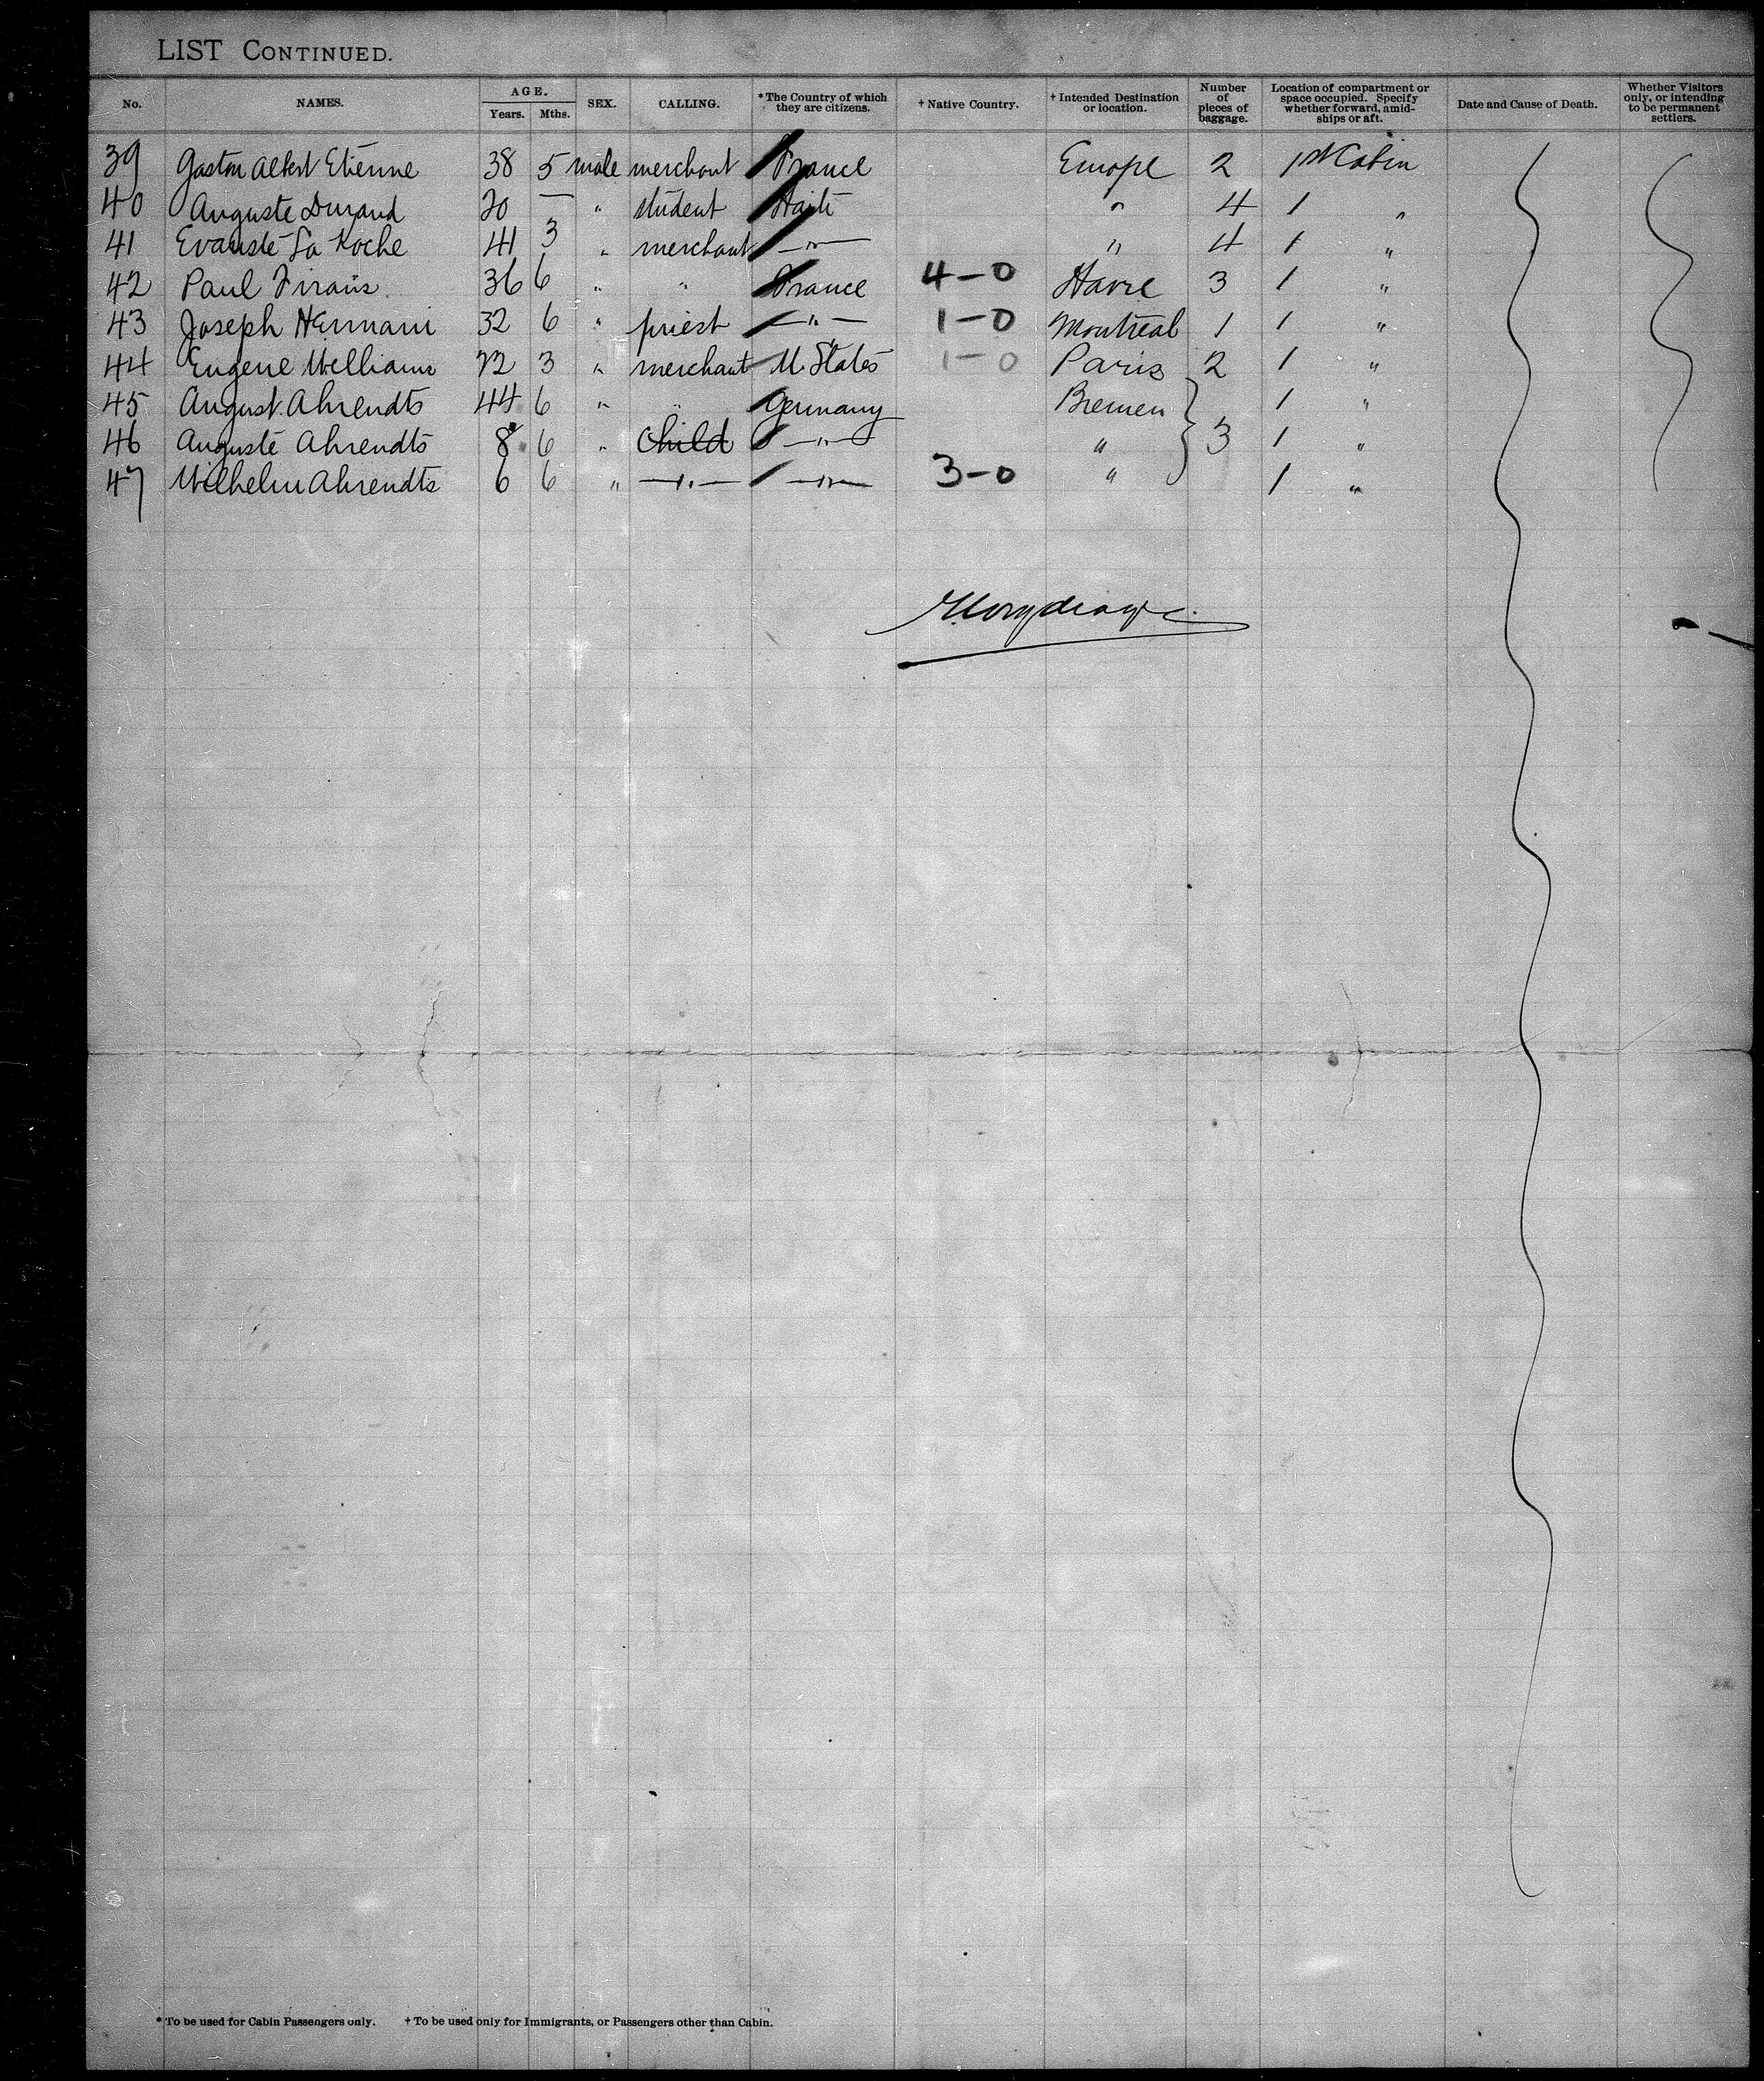 LIST CONTINUED.
No. NAMES. AGE. Years. Mths. SEX. CALLING. *The Country of which they are citizens. † Native Country. † Intended Destination or location. Number of pieces of baggage. Location of compartment or space occupied. Specify whether forward, amidships or aft. Date and Cause of Death. Whether Visitors only, or intending to be permanent settlers.
39 Gaston Albert Etienne 38 5 male merchant France Europe 2 1st Cabin
40 Auguste Durand 20 — " student Haiti " 4 1 "
41 Evariste La Roche 41 3 " merchant —"— " 4 1 "
42 Paul 36 6 " " France 4-0 Havre 3 1 "
43 Joseph Hermani 32 6 " priest —"— 1-0 Montreal 1 1 "
44 Eugene Williams 22 3 " merchant U. States 1-0 Paris 2 1 "
45 August Ahrendts 44 6 " " Germany Bremen 1 "
46 Auguste Ahrendts 8 6 " child —"— " 3 1 "
47 Wilhelm Ahrendts 6 6 " —"— —"— 3-0 " 1 "
* To be used for Cabin Passengers only. † To be used only for Immigrants, or Passengers other than Cabin.